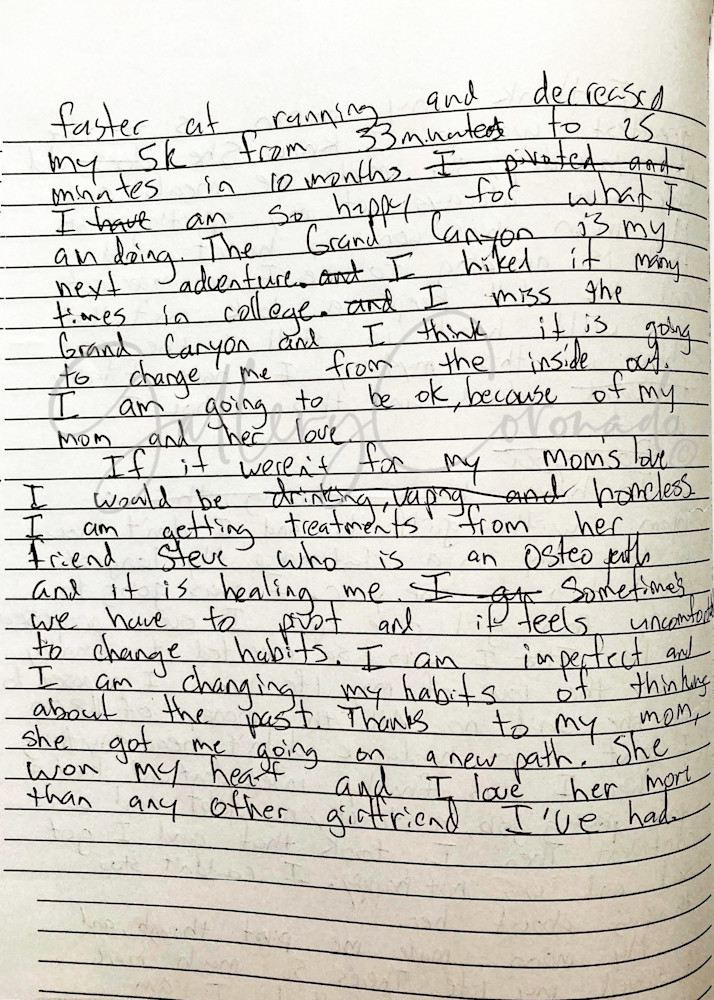 faster at running and decreased
my 5k from 33minutes to 25
minutes in 10 months. I pivoted and
I have am so happy for what I
am doing. The Grand Canyon is my
next adventure. and I hiked it many
times in college. and I miss the
Grand Canyon and I think it is going
to change me from the inside out.
I am going to be ok, because of my
mom and her love.
If it weren't for my mom's love
I would be drinking, vaping and homeless
I am getting treatments from her
friend Steve who is an Osteopath
and it is healing me. I am Sometimes
we have to pivot and it feels uncomfort
to change habits. I am imperfect and
I am changing my habits of thinking
about the past. Thanks to my mom,
she got me going on a new path. She
won my heart and I love her more
than any other girlfriend I've had.
Gallery Coronado ©